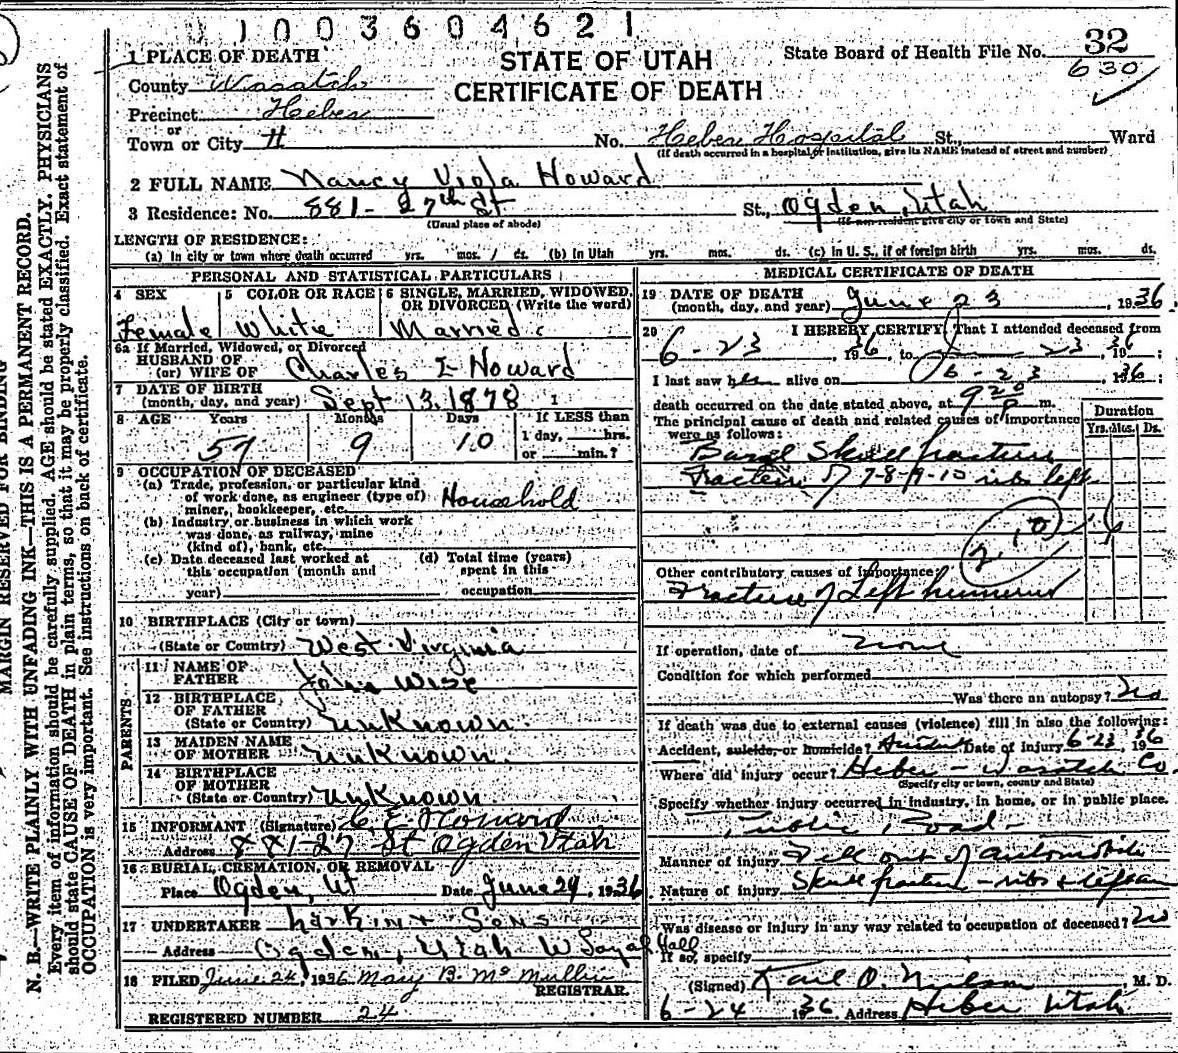 1003604621
STATE OF UTAH
CERTIFICATE OF DEATH
State Board of Health File No. 32
630
1 PLACE OF DEATH
County Wasatch
Precinct Heber
or
Town or City H No. Heber Hospital St., Ward
(If death occurred in a hospital or institution, give its NAME instead of street and number)
2 FULL NAME Nancy Viola Howard
3 Residence: No. 881-27th St St., Ogden, Utah
(Usual place of abode) (If non-resident give city or town and State)
LENGTH OF RESIDENCE:
(a) In city or town where death occurred yrs. mos. ds. (b) In Utah yrs. mos. ds. (c) In U. S., if of foreign birth yrs. mos. ds.
PERSONAL AND STATISTICAL PARTICULARS
4 SEX Female
5 COLOR OR RACE White
6 SINGLE, MARRIED, WIDOWED, OR DIVORCED (Write the word) Married
6a If Married, Widowed, or Divorced
HUSBAND OF
(or) WIFE OF Charles E Howard
7 DATE OF BIRTH
(month, day, and year) Sept 13, 1878
8 AGE Years Months Days If LESS than
57 9 10 1 day, hrs.
or min.?
9 OCCUPATION OF DECEASED
(a) Trade, profession, or particular kind
of work done, as engineer (type of)
miner, bookkeeper, etc. Household
(b) Industry or business in which work
was done, as railway, mine
(kind of), bank, etc.
(c) Date deceased last worked at
this occupation (month and
year)
(d) Total time (years)
spent in this
occupation
10 BIRTHPLACE (City or town)
(State or Country) West Virginia
PARENTS
11 NAME OF
FATHER John Wise
12 BIRTHPLACE
OF FATHER
(State or Country) Unknown.
13 MAIDEN NAME
OF MOTHER Unknown.
14 BIRTHPLACE
OF MOTHER
(State or Country) Unknown
15 INFORMANT (Signature) C. E. Howard
Address 881-27 St Ogden Utah
16 BURIAL, CREMATION, OR REMOVAL
Place Ogden, Ut Date June 24, 1936
17 UNDERTAKER Larkin & Sons
Address Ogden, Utah W
18 FILED June 24, 1936 Mary B. McMullin
REGISTRAR.
REGISTERED NUMBER 24
MEDICAL CERTIFICATE OF DEATH
19 DATE OF DEATH
(month, day, and year) June 23, 1936.
20 I HEREBY CERTIFY, That I attended deceased from
6-23, 1936 to 23, 1936;
I last saw her alive on 6-23, 1936;
death occurred on the date stated above, at 9 20 P m.
The principal cause of death and related causes of importance
were as follows:
Duration
Yrs. Mos. Ds.
Basal Skull fracture
Fracture of 7-8-9-10 ribs left
210
Other contributory causes of importance:
Fracture of Left humerus
If operation, date of none
Condition for which performed
Was there an autopsy? No
If death was due to external causes (violence) fill in also the following:
Accident, suicide, or homicide? Accident Date of injury 6-23, 1936
Where did injury occur? Heber - Wasatch Co.
(Specify city or town, county and State)
Specify whether injury occurred in industry, in home, or in public place.
Public Road -
Manner of injury Fell out of automobile
Nature of injury Skull fracture - ribs &
Was disease or injury in any way related to occupation of deceased? No
If so, specify
(Signed) Karl O. Nielson, M. D.
6-24 1936 Address Heber Utah
MARGIN RESERVED FOR BINDING
N. B.—WRITE PLAINLY WITH UNFADING INK—THIS IS A PERMANENT RECORD.
Every item of information should be carefully supplied. AGE should be stated EXACTLY. PHYSICIANS
should state CAUSE OF DEATH in plain terms, so that it may be properly classified. Exact statement of
OCCUPATION is very important. See instructions on back of certificate.